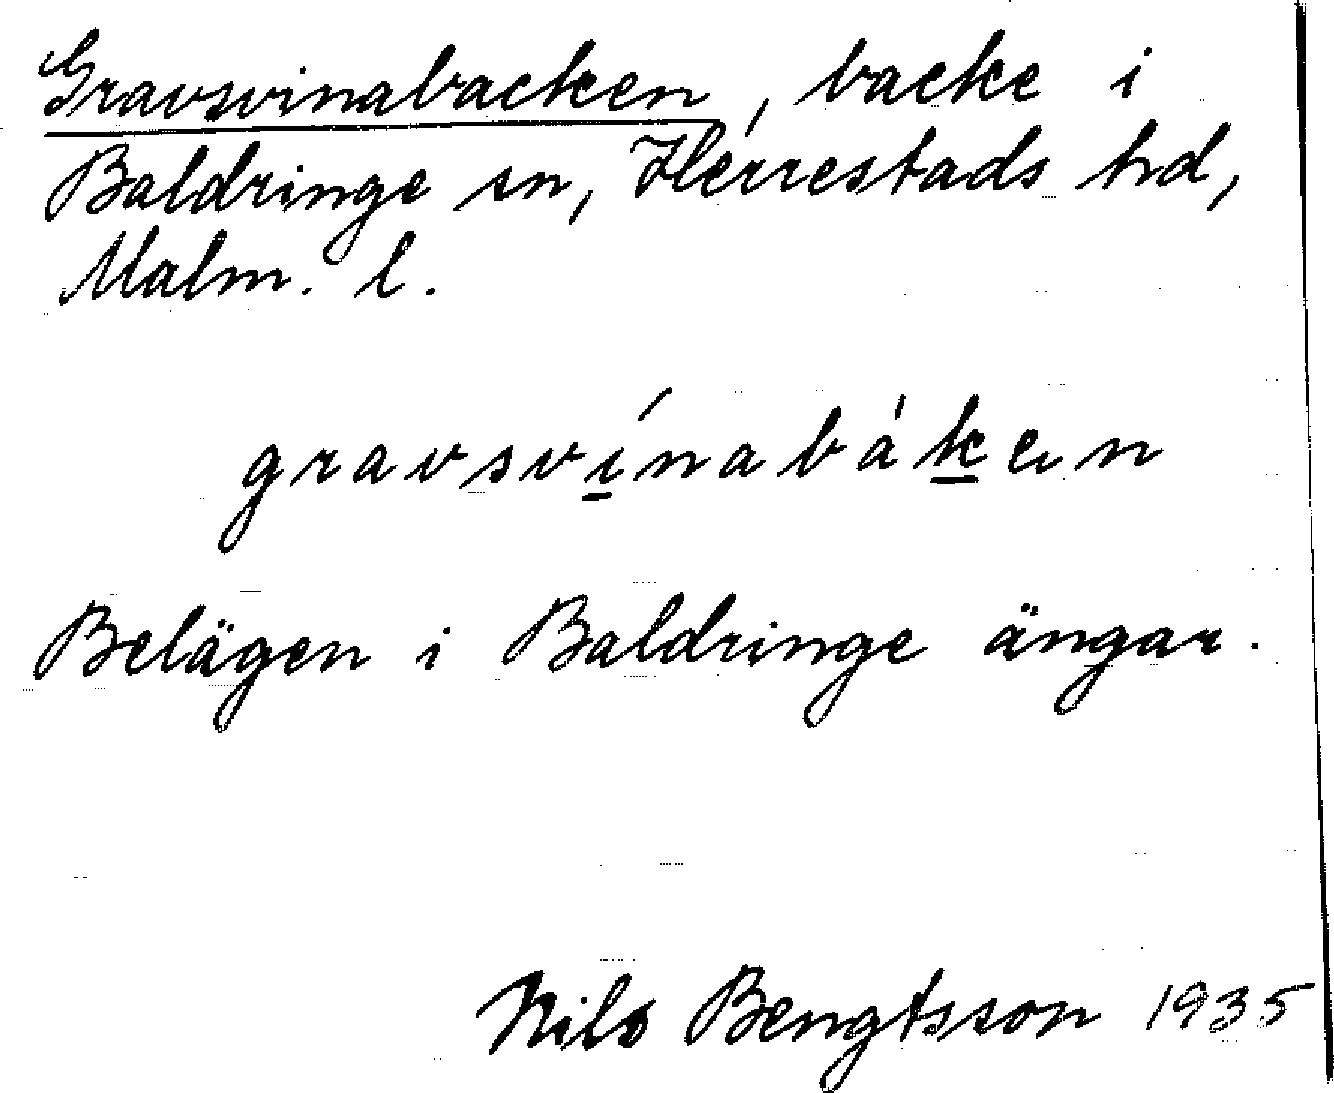 Gravsvinabacken, backe i
Baldringe sn, Herrestads hd,
Malm. l.
gravsvínabáken
Belägen i Baldringe ängar.
Nils Bengtsson 1935